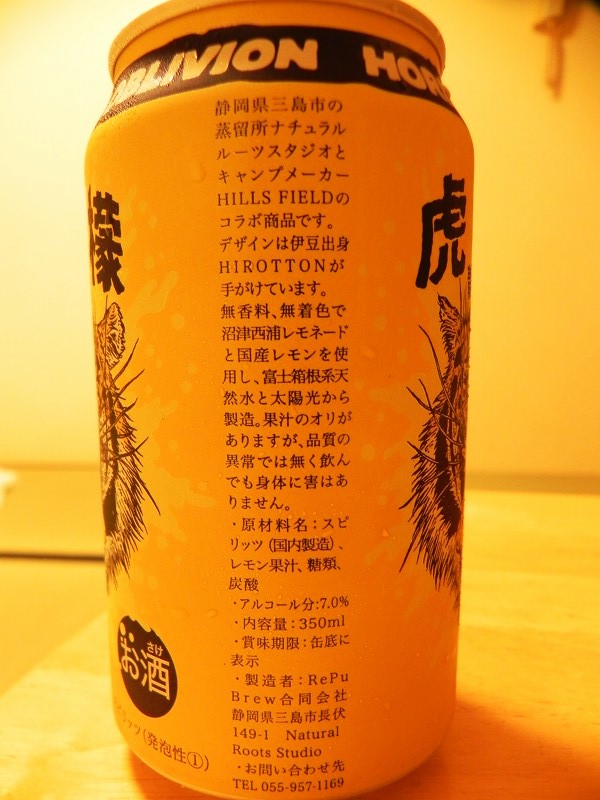 OBLIVION HOR
檬
虎
静岡県三島市の
蒸留所ナチュラル
ルーツスタジオと
キャンプメーカー
HILLS FIELDの
コラボ商品です。
デザインは伊豆出身
HIROTTONが
手がけています。
無香料、無着色で
沼津西浦レモネード
と国産レモンを使
用し、富士箱根系天
然水と太陽光から
製造。果汁のオリが
ありますが、品質の
異常では無く飲ん
でも身体に害はあ
りません。
・原材料名：スピ
リッツ（国内製造）、
レモン果汁、糖類、
炭酸
・アルコール分:7.0%
・内容量：350ml
・賞味期限：缶底に
表示
・製造者：RePu
Brew合同会社
静岡県三島市長伏
149-1 Natural
Roots Studio
・お問い合わせ先
TEL 055-957-1169
さけ
お酒
スピリッツ（発泡性①）